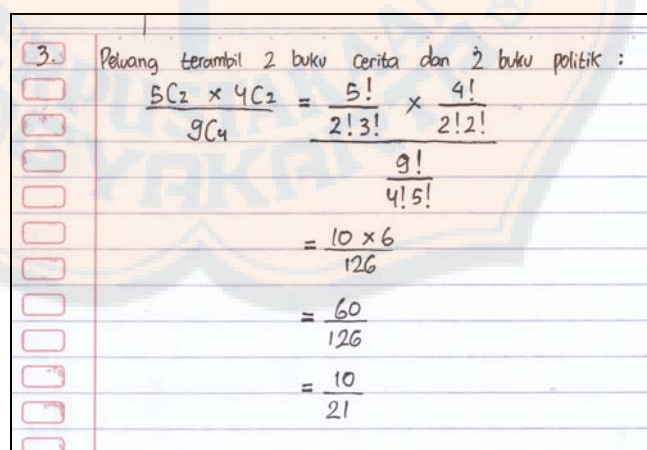 3. Peluang terambil 2 buku cerita dan 2 buku politik :
5C2 × 4C2 / 9C4 = 5! / 2!3! × 4! / 2!2! / 9! / 4!5!
= 10 × 6 / 126
= 60 / 126
= 10 / 21